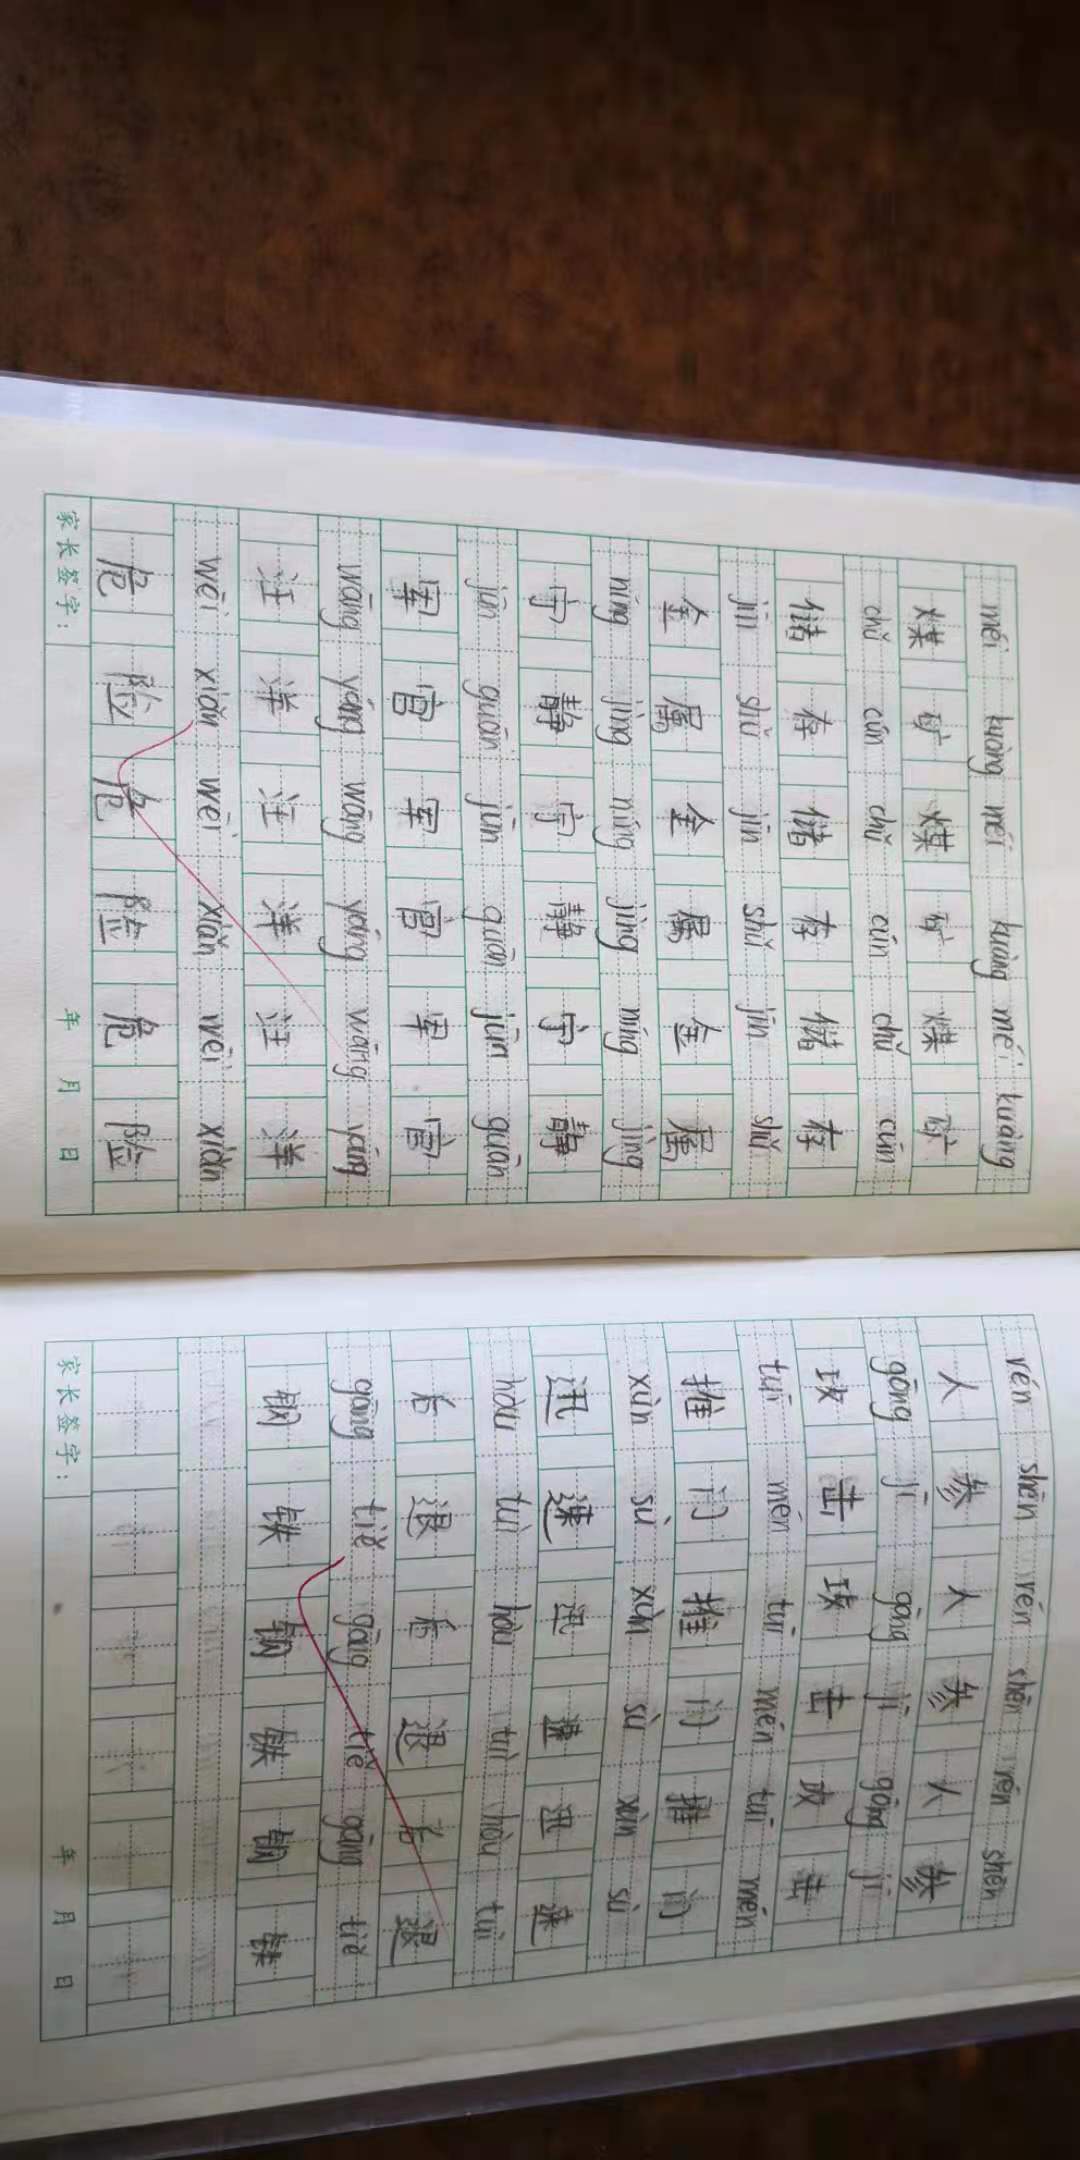 méi kuàng méi kuàng méi kuàng
煤矿煤矿煤矿
chǔ cún chǔ cún chǔ cún
储存储存储存
jīn shǔ jīn shǔ jīn shǔ
金属金属金属
níng jìng níng jìng níng jìng
宁静宁静宁静
jūn guān jūn guān jūn guān
军官军官军官
wāng yáng wāng yáng wāng yáng
汪洋汪洋汪洋
wēi xiǎn wēi xiǎn wēi xiǎn
危险危险危险
家长签字： 年 月 日
rén shēn rén shēn rén shēn
人参人参人参
gōng jī gōng jī gōng jī
攻击攻击攻击
tuī mén tuī mén tuī mén
推门推门推门
xùn sù xùn sù xùn sù
迅速迅速迅速
hòu tuì hòu tuì hòu tuì
后退后退后退
gāng tiě gāng tiě gāng tiě
钢铁钢铁钢铁
家长签字： 年 月 日